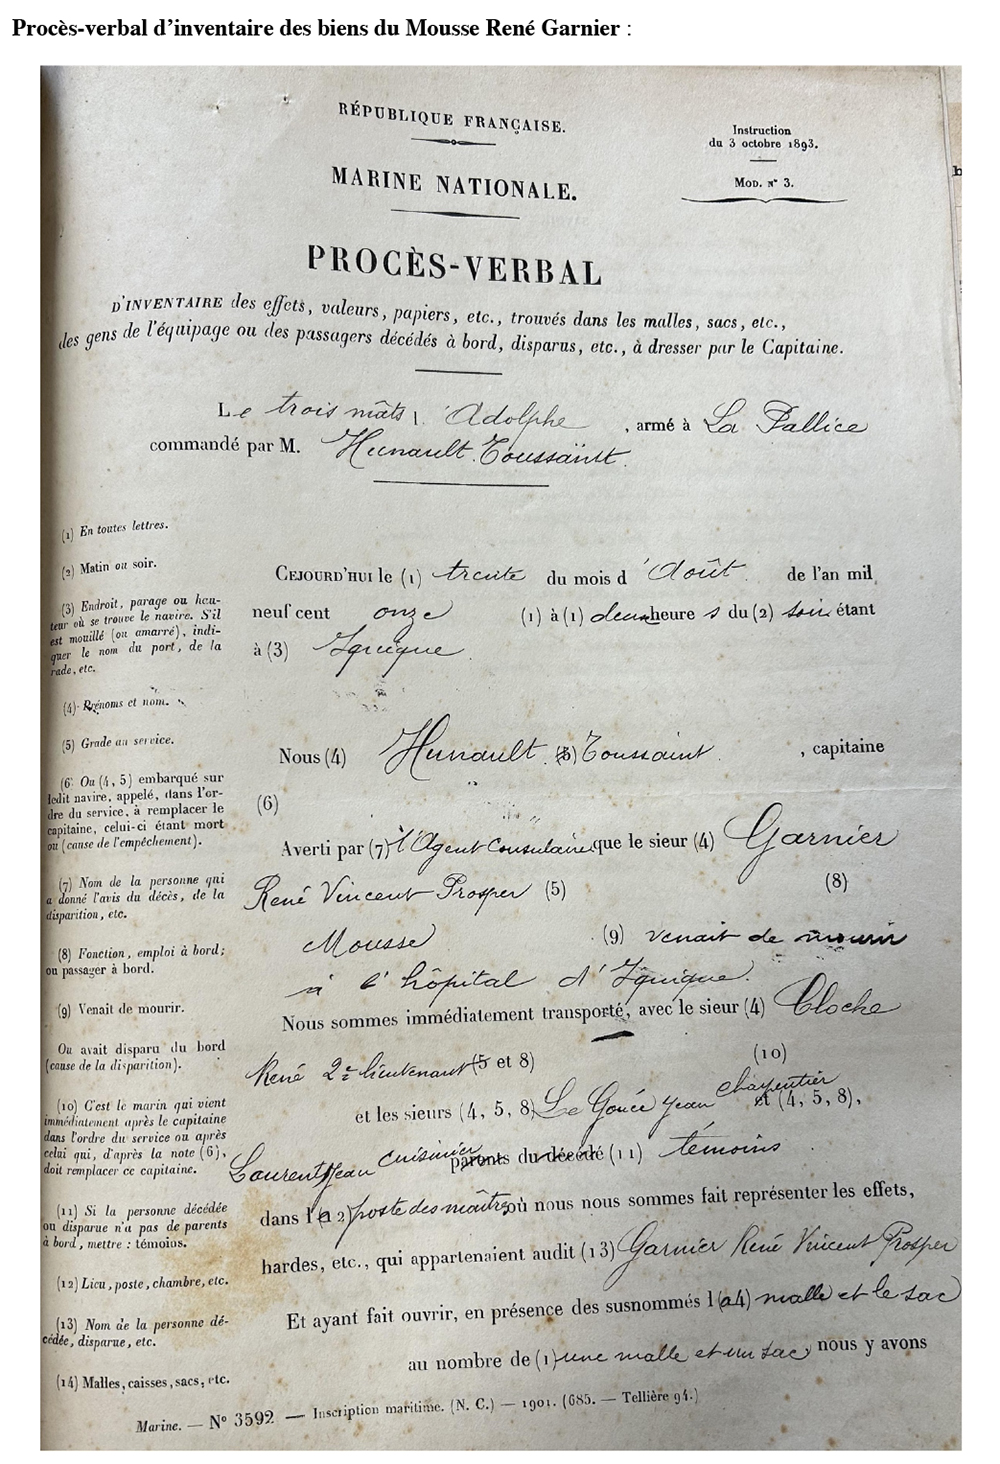 Procès-verbal d’inventaire des biens du Mousse René Garnier :
RÉPUBLIQUE FRANÇAISE.
Instruction
du 3 octobre 1893.
Mod. N° 3.
MARINE NATIONALE.
PROCÈS-VERBAL
D'INVENTAIRE des effets, valeurs, papiers, etc., trouvés dans les malles, sacs, etc.,
des gens de l'équipage ou des passagers décédés à bord, disparus, etc., à dresser par le Capitaine.
Le trois mâts Adolphe , armé à La Pallice
commandé par M. Hunault Toussaint.
(1) En toutes lettres.
(2) Matin ou soir.
(3) Endroit, parage ou hau-
teur où se trouve le navire. S'il
est mouillé (ou amarré), indi-
quer le nom du port, de la
rade, etc.
(4) Prénoms et nom.
(5) Grade au service.
(6) Ou (4, 5) embarqué sur
ledit navire, appelé, dans l'or-
dre du service, à remplacer le
capitaine, celui-ci étant mort
ou (cause de l'empêchement).
(7) Nom de la personne qui
a donné l'avis du décès, de la
disparition, etc.
(8) Fonction, emploi à bord;
ou passager à bord.
(9) Venait de mourir.
Ou avait disparu du bord
(cause de la disparition).
(10) C'est le marin qui vient
immédiatement après le capitaine
dans l'ordre du service ou après
celui qui, d'après la note (6),
doit remplacer ce capitaine.
(11) Si la personne décédée
ou disparue n'a pas de parents
à bord, mettre : témoins.
(12) Lieu, poste, chambre, etc.
(13) Nom de la personne dé-
cédée, disparue, etc.
(14) Malles, caisses, sacs, etc.
CEJOURD'HUI le (1) trente du mois d'Août de l'an mil
neuf cent onze (1) à (1) deux heures du (2) soir étant
à (3) Iquique
Nous (4) Hunault (5) Toussaint , capitaine
(6)
Averti par (7) l'Agent Consulaire que le sieur (4) Garnier
René Vincent Prosper (5) (8)
Mousse (9) venait de mourir
à l'hôpital d'Iquique.
Nous sommes immédiatement transporté, avec le sieur (4) Cloche
René 2e lieutenant (5 et 8) (10)
et les sieurs (4, 5, 8) Le Gouée Jean charpentier et (4, 5, 8),
Laurent Jean cuisinier parents du décédé (11) témoins
dans le (12) poste des maîtres où nous nous sommes fait représenter les effets,
hardes, etc., qui appartenaient audit (13) Garnier René Vincent Prosper
Et ayant fait ouvrir, en présence des susnommés la (14) malle et le sac
au nombre de (1) une malle et un sac nous y avons
Marine. — N° 3592 — Inscription maritime. (N. C.) — 1901. (685. — Tellière 94.)